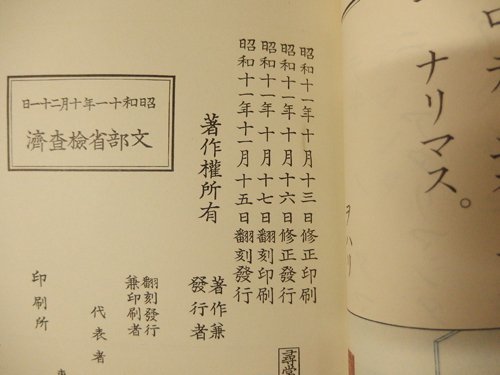 ナリマス。
ヲハリ
昭和十一年十月十三日修正印刷
昭和十一年十月十六日修正發行
昭和十一年十月十七日翻刻印刷
昭和十一年十一月十五日翻刻發行
著作權所有
尋常
著作兼
發行者
翻刻發行
兼印刷者
代表者
印刷所
昭和十一年十月二十一日
文部省檢査濟